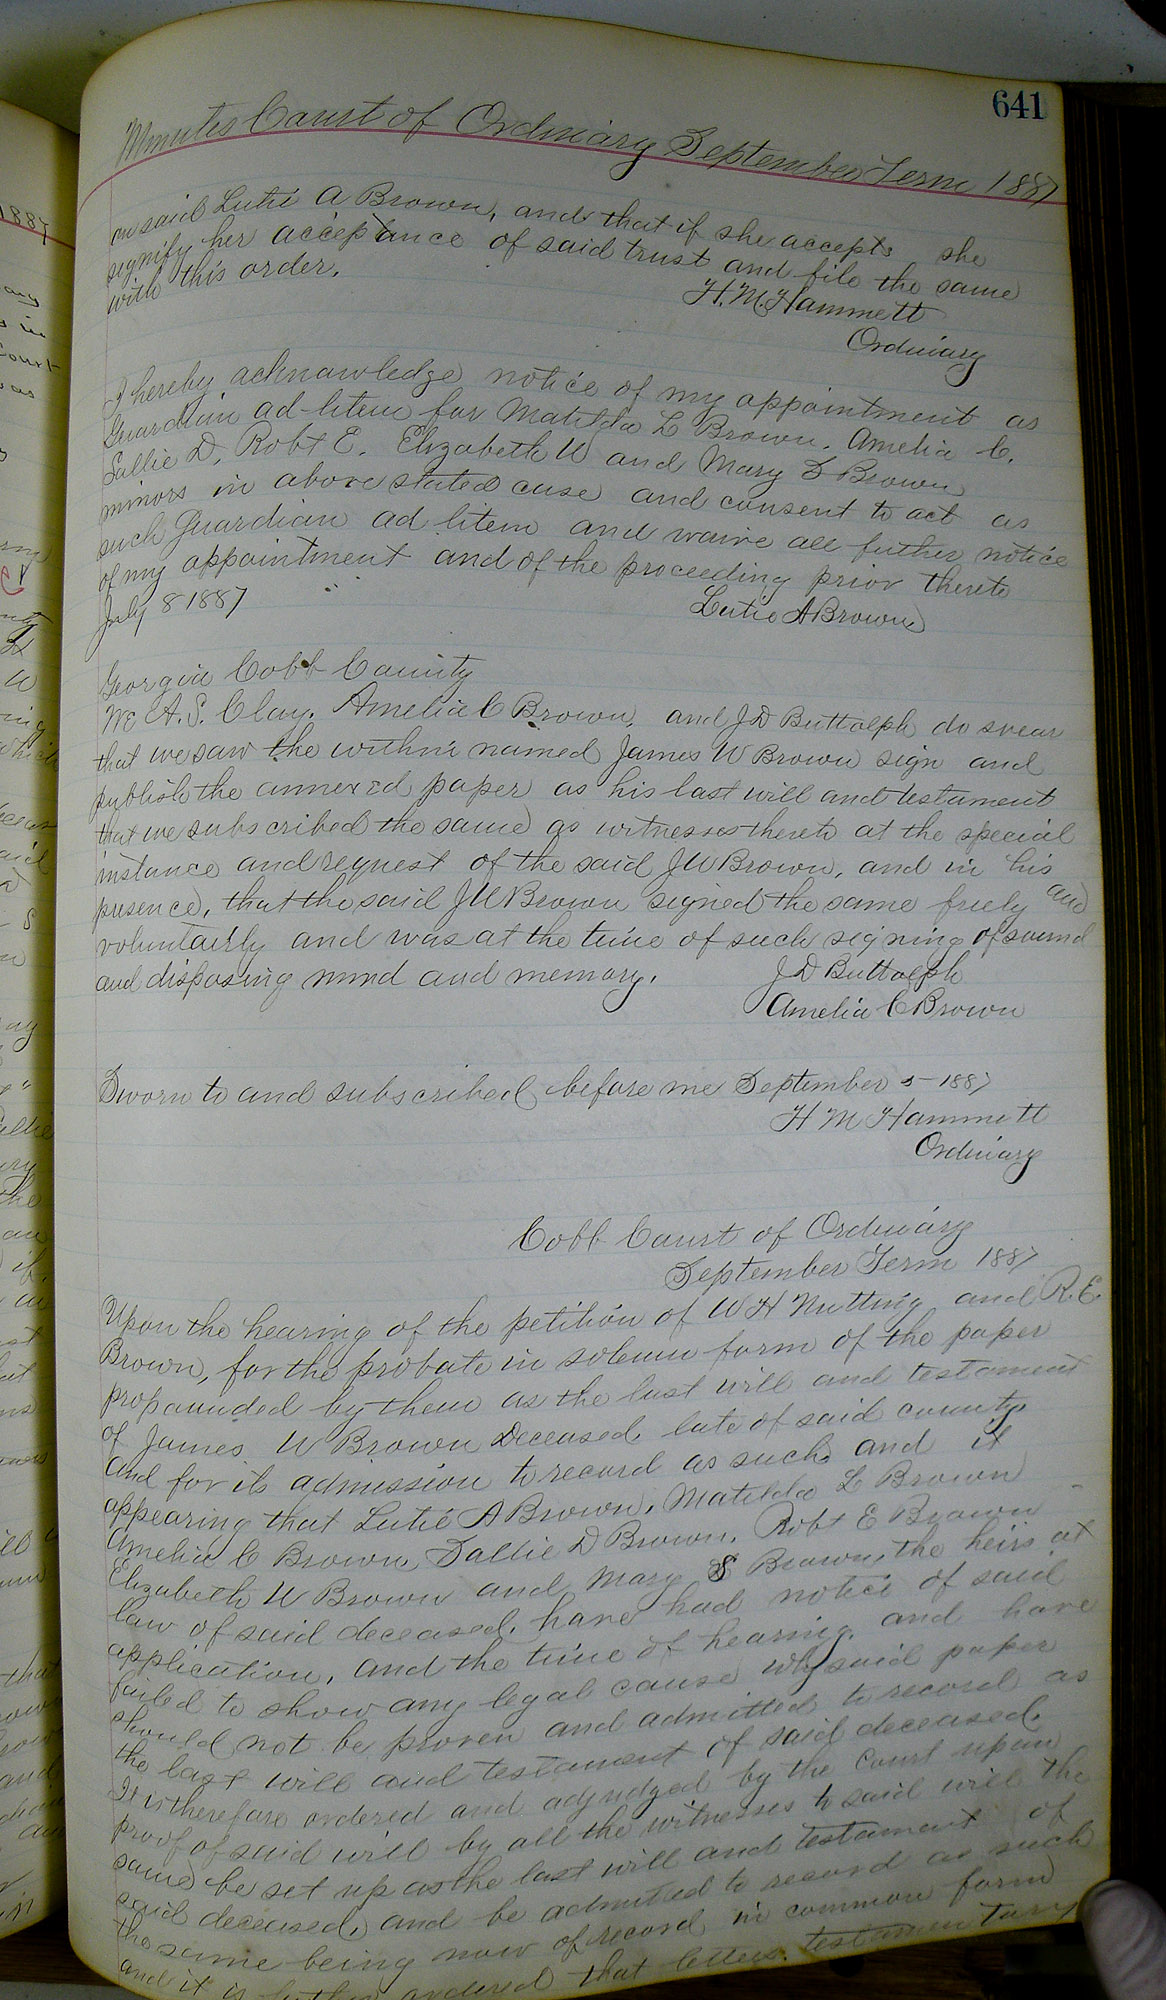 641
Minutes Court of Ordinary September Term 1887
on said Lutie A Brown, and that if she accepts she
signify her acceptance of said trust and file the same
with this order.
H. M. Hammett
Ordinary
I hereby acknowledge notice of my appointment as
Guardian ad-litem for Matilda L Brown. Amelia C.
Sallie D. Robt E. Elizabeth W and Mary S Brown
minors in above stated case and consent to act as
such Guardian ad litem and waive all futher notice
of my appointment and of the proceeding prior thereto
July 8 1887
Lutie A Brown
Georgia Cobb County
We A. S. Clay. Amelia C Brown, and J D Buttolph do swear
that we saw the within named James W Brown sign and
publish the annexed paper as his last will and testament
that we subscribed the same as witnesses thereto at the special
instance and request of the said J W Brown, and in his
presence, that the said J W Brown signed the same freely and
voluntairly and was at the time of such signing of sound
and disposing mind and memory.
J D Buttolph
Amelia C Brown
Sworn to and subscribed before me September 5 - 1887
H M Hammett
Ordinary
Cobb Court of Ordinary
September Term 1887
Upon the hearing of the petition of W H Nutting and R. E.
Brown, for the probate in solemn form of the paper
propounded by them as the last will and testament
of James W Brown Deceased late of said county,
and for its admission to record as such, and it
appearing that Lutie A Brown, Matilda L Brown
Amelia C Brown, Sallie D Brown, Robt E Brown
Elizabeth W Brown and Mary S Brown, the heirs at
law of said deceased, have had notice of said
application, and the time of hearing, and have
failed to show any legal cause why said paper
should not be proven and admitted to record as
the last will and testament of said deceased.
It is therefore ordered and adjudged by the Court upon
proof of said will by all the witnesses to said will the
same be set up as the last will and testament of
said deceased, and be admitted to record as such
the same being now of record in common form
and it is futher ordered that letters testamentary